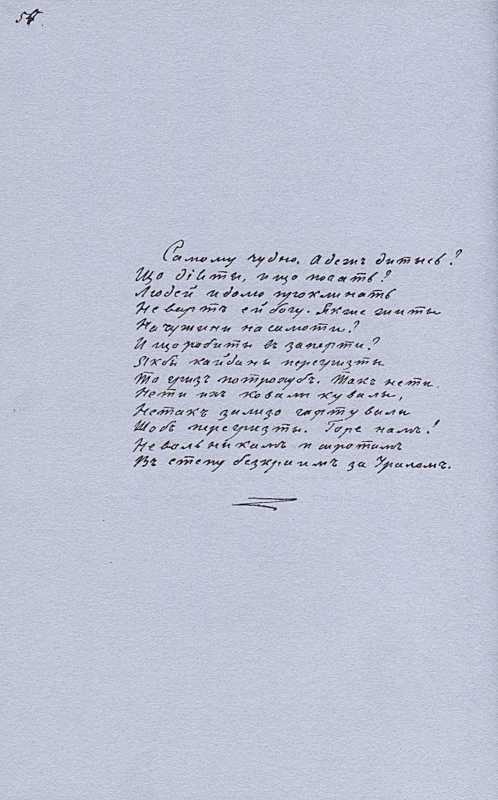 54
Самому чудно. А дежъ дитысь?
Що діяты, и що почать?
Людей и долю проклинать
Не вартъ ей богу. Якже жыты
На чужыни на самоти?
И що робыты въ заперти?
Якбы кайданы перегризты
То гризъ потрохубъ. Такъ нети
Нети ихъ ковали кувалы,
Нетакъ зализо гартувалы
Щобъ перегризты. Горе намъ!
Невольныкамъ и сиротамъ
Въ степу безкраимъ за Ураломъ.